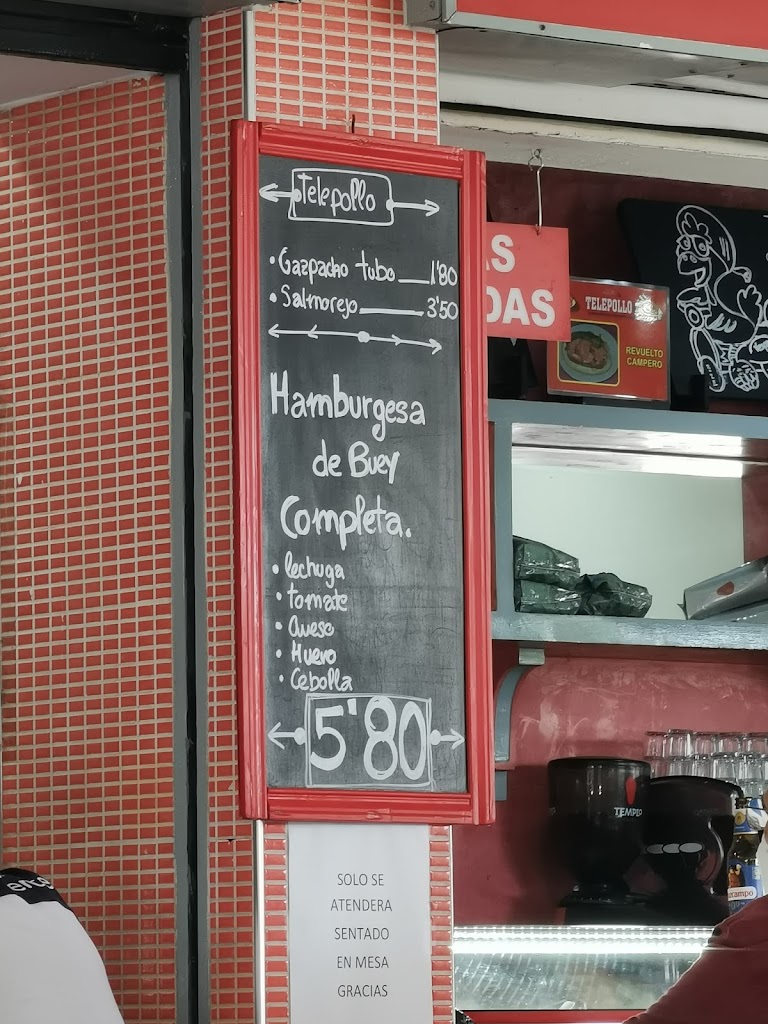 Telepollo
• Gazpacho tubo 1'80
• Salmorejo 3'50
Hamburgesa
de Buey
Completa.
• lechuga
• tomate
• Queso
• Huevo
• Cebolla
5'80
SOLO SE
ATENDERA
SENTADO
EN MESA
GRACIAS
AS
DAS
TELEPOLLO
REVUELTO
CAMPERO
TEMPER